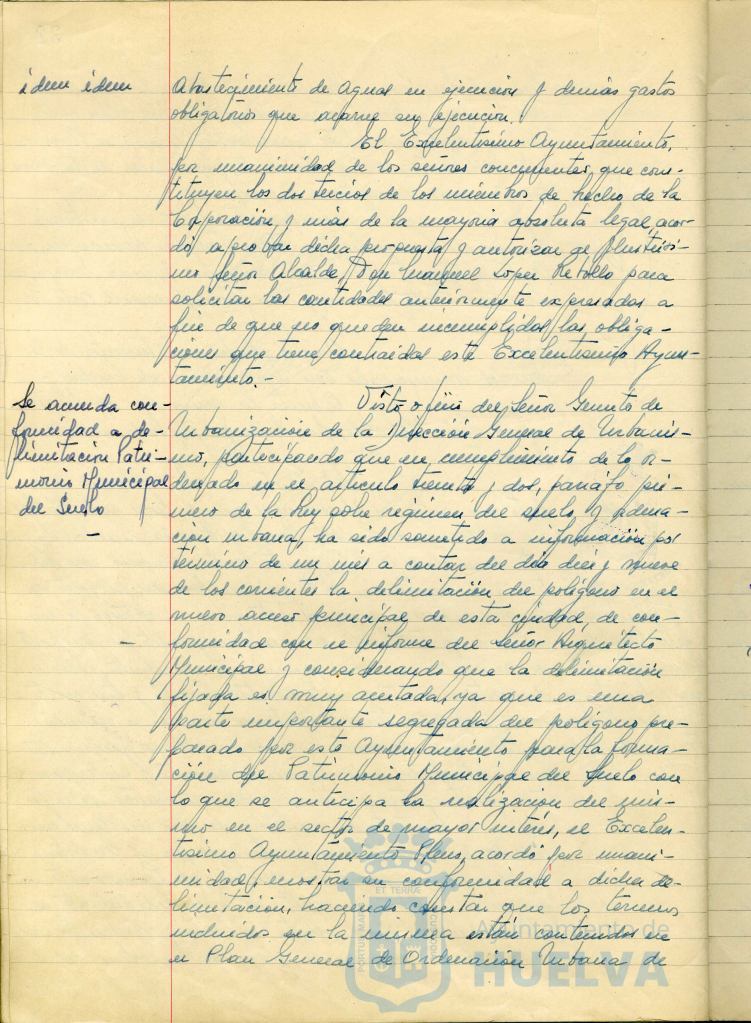 idem idem
Abastecimiento de Aguas en ejecución y demás gastos
obligatorios que acarree su ejecución.
El Excelentísimo Ayuntamiento,
por unanimidad de los señores concurrentes que cons-
tituyen los dos tercios de los miembros de hecho de la
Corporación, y más de la mayoría absoluta legal, acor-
dó aprobar dicha propuesta y autorizar al Ilustrísi-
mo Señor Alcalde, Don Manuel López Rebollo para
solicitar las cantidades anteriormente expresadas a
fin de que no queden incumplidas las obliga-
ciones que tiene contraidas este Excelentísimo Ayun-
tamiento.-
Se acuerda con-
formidad a de-
limitación Patri-
monio Municipal
del Suelo
-
Visto oficio del Señor Gerente de
Urbanización de la Dirección General de Urbanis-
mo, participando que en cumplimiento de lo or-
denado en el artículo ciento y dos, párrafo pri-
mero de la Ley sobre régimen del suelo y ordena-
ción urbana, ha sido sometido a información por
término de un mes a contar del día diez y nueve
de los corrientes la delimitación del polígono en el
nuevo acceso principal de esta ciudad, de con-
formidad con el informe del Señor Arquitecto
Municipal y considerando que la delimitación
fijada es muy acertada, ya que es una
parte importante segregada del polígono pre-
parado por este Ayuntamiento para la forma-
ción del Patrimonio Municipal del Suelo con
lo que se anticipa la realización del mis-
mo en el sector de mayor interés, el Excelen-
tísimo Ayuntamiento Pleno, acordó por unani-
midad, mostrar su conformidad a dicha de-
limitación, haciendo constar que los terrenos
incluidos en la misma están contenidos en
el Plan General de Ordenación Urbana de
ET TERRA
Ayuntamiento de
HUELVA